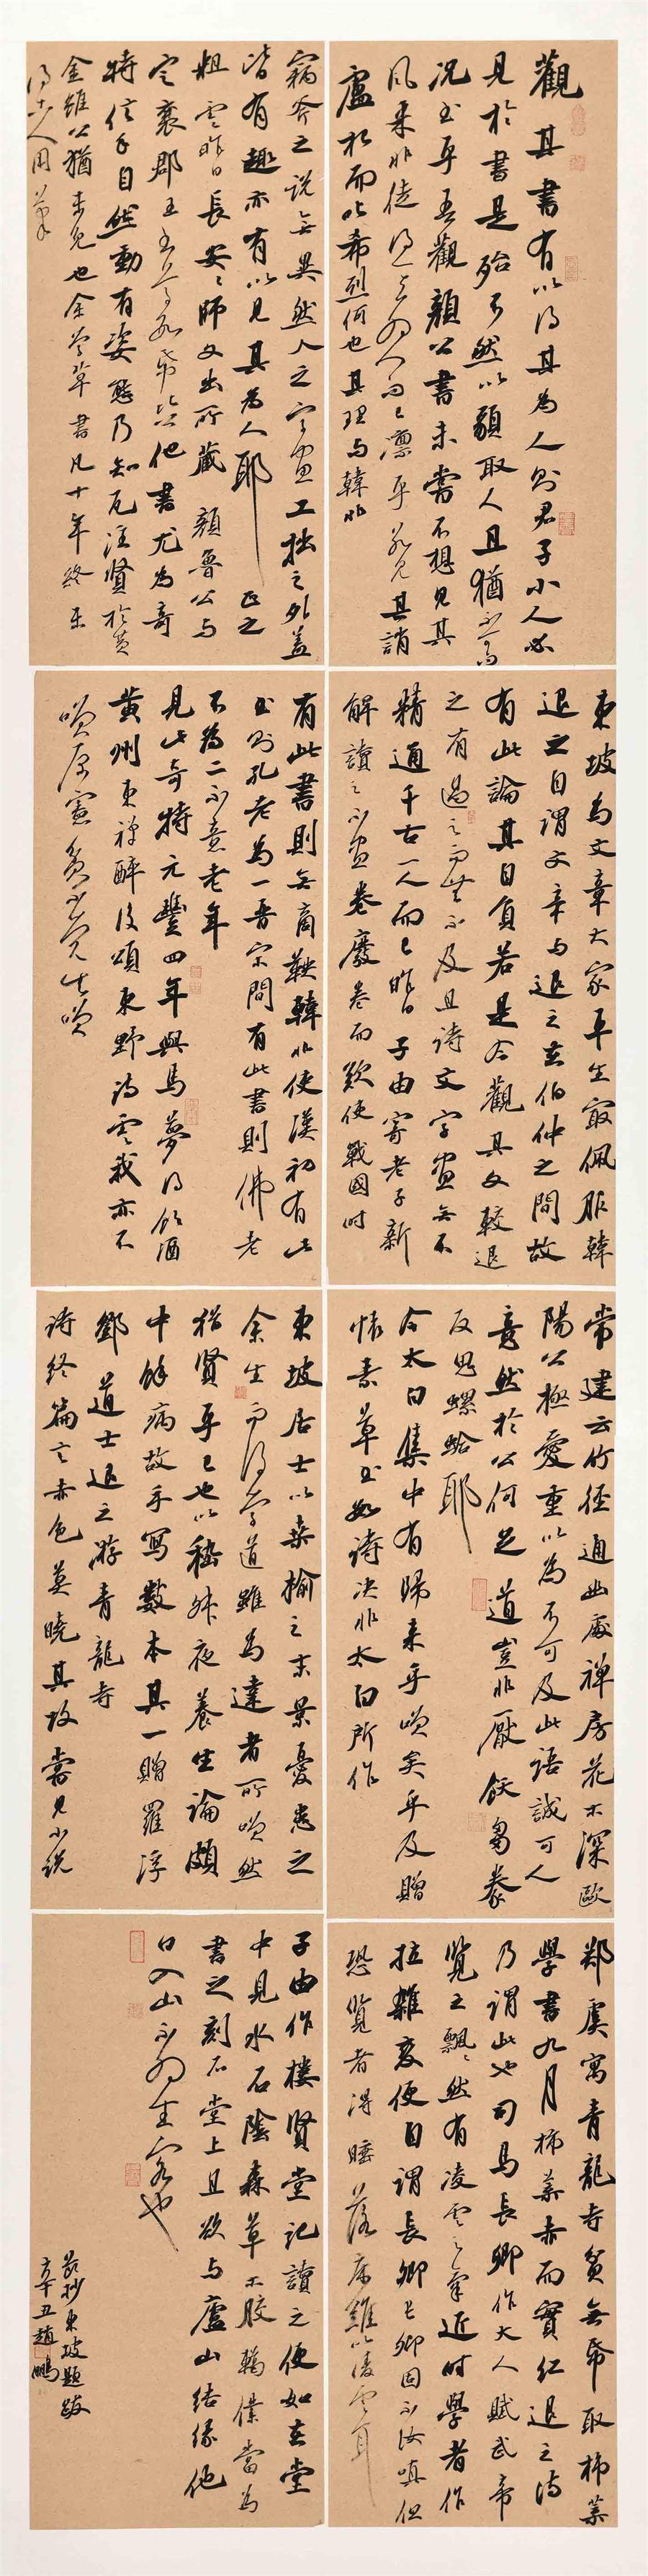 觀其書有以得其為人則君子小人必
見於書是殆不然以貌取人且猶不可
況書乎吾觀顏公書未嘗不想見其
風采非徒得之為人而已凜乎若見其誚
盧杞而叱希烈何也其理與韓非
竊斧之說無異然人之字畫工拙之外蓋
皆有趣亦有以見其為人耶正之
粗云昨日長安安師文出所藏顏魯公與
定襄郡王書草數紙比他書尤為奇
特信手自然動有姿態乃知瓦注賢於黃
金雖公猶未免也余學草書凡十年終未
得古人用筆
東坡為文章大家平生最佩服韓
退之自謂文章與退之在伯仲之間故
有此論其自負若是今觀其文較退
之有過之而無不及且詩文字畫無不
精通千古一人而已昨日子由寄老子新
解讀之不盡卷廢卷而歎使戰國時
有此書則無商鞅韓非使漢初有此
書則孔老為一晉宋間有此書則佛老
不為二不意老年
見此奇特元豐四年與馬夢得飲酒
黃州東禪醉後頌東野詩云我亦不
笑原憲貧不覺失笑
常建云竹徑通幽處禪房花木深歐
陽公極愛重以為不可及此語誠可人
意然於公何足道豈非厭飫芻豢
反思螺蛤耶
今太白集中有歸來乎笑矣乎及贈
懷素草書數詩決非太白所作
東坡居士以桑榆之末景憂患之
余生而後學道雖為達者所笑然
猶賢乎已也以嵇叔夜養生論頗
中餘病故手寫數本其一贈羅浮
鄧道士退之游青龍寺
詩終篇言赤色莫曉其故嘗見小說
鄭虔寓青龍寺貧無紙取柿葉
學書九月柿葉赤而實紅退之詩
乃謂此也司馬長卿作大人賦武帝
覽之飄飄然有凌雲之氣近時學者作
拉雜變便自謂長卿長卿固不汝嗔但
恐覽者渴睡落床難以凌雲耳
子由作棲賢堂記讀之便如在堂
中見水石陰森草木膠輵僕當為
書之刻石堂上且欲與廬山結緣他
日入山不為生客也
節抄東坡題跋
辛丑趙鵬